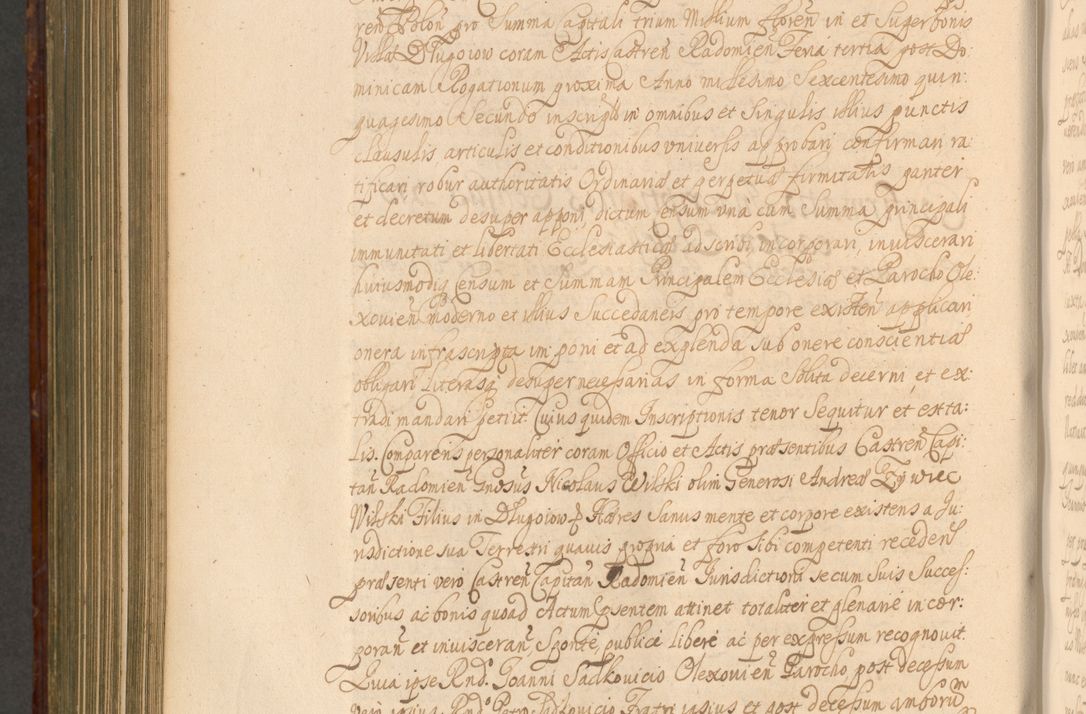 Polon̄ pro Summa capitali trium Millium floren̄ in et Super bonis
Villæ Długoiow coram Actis castren̄ Radomien̄ Feria tertia post Do:
minicam Rogationum proxima Anno millesimo Sexcentesimo quin:
quagesimo Secundo inscriptō in omnibus et Singulis illius punctis
clausulis articulis et conditionibus vniversis approbari confirmari ra:
tificari robur authoritatis Ordinariæ et perpetuæ firmitatis pariter
et decretum desuper apponi dictum censum una cum Summa principali
immunitati et libertati Ecclesiasticæ adscribi, incorporari, inviscerari
huiusmodi censum et Summam Principalem Ecclesiæ et Parocho Ole:
xovien̄ moderno et illius Succedaneis pro tempore existen̄ applicari
onera infrascripta imponi et ad explenda Sub onere conscientiæ
obligari Literasq; desuper necessarias in forma Solita decerni, et ex:
tradi mandari petiit. Cuius quidem Inscriptionis tenor Sequitur et est ta:
lis. Comparens personaliter coram Officio et Actis præsentibus Castren̄ Capi:
tan̄ Radomien̄ Gnosus Nicolaus Wilski olim Generosi Andreæ Zÿwiec
Wilski Filius in Długoiow Hæres Sanus mente et corpore existens a Ju:
risdictione sua Terrestri quavis propria et foro Sibi competenti recedens
præsenti vero Castren̄ Capitan̄ Radomien̄ Jurisdictioni se cum Suis Succes:
soribus ac bonis quoad Actum præsentem attinet totaliter et plenarie incor:
poran̄ et inviscerans, Sponte, publice libere ac per expressum recognovit.
Quia ipse Rnd° Joanni Sadkovicio Olexovien̄ Parocho, post decessum
vero ipsius Rnd° Petro Sadkovicio Fratri ipsius et post decessum amborum